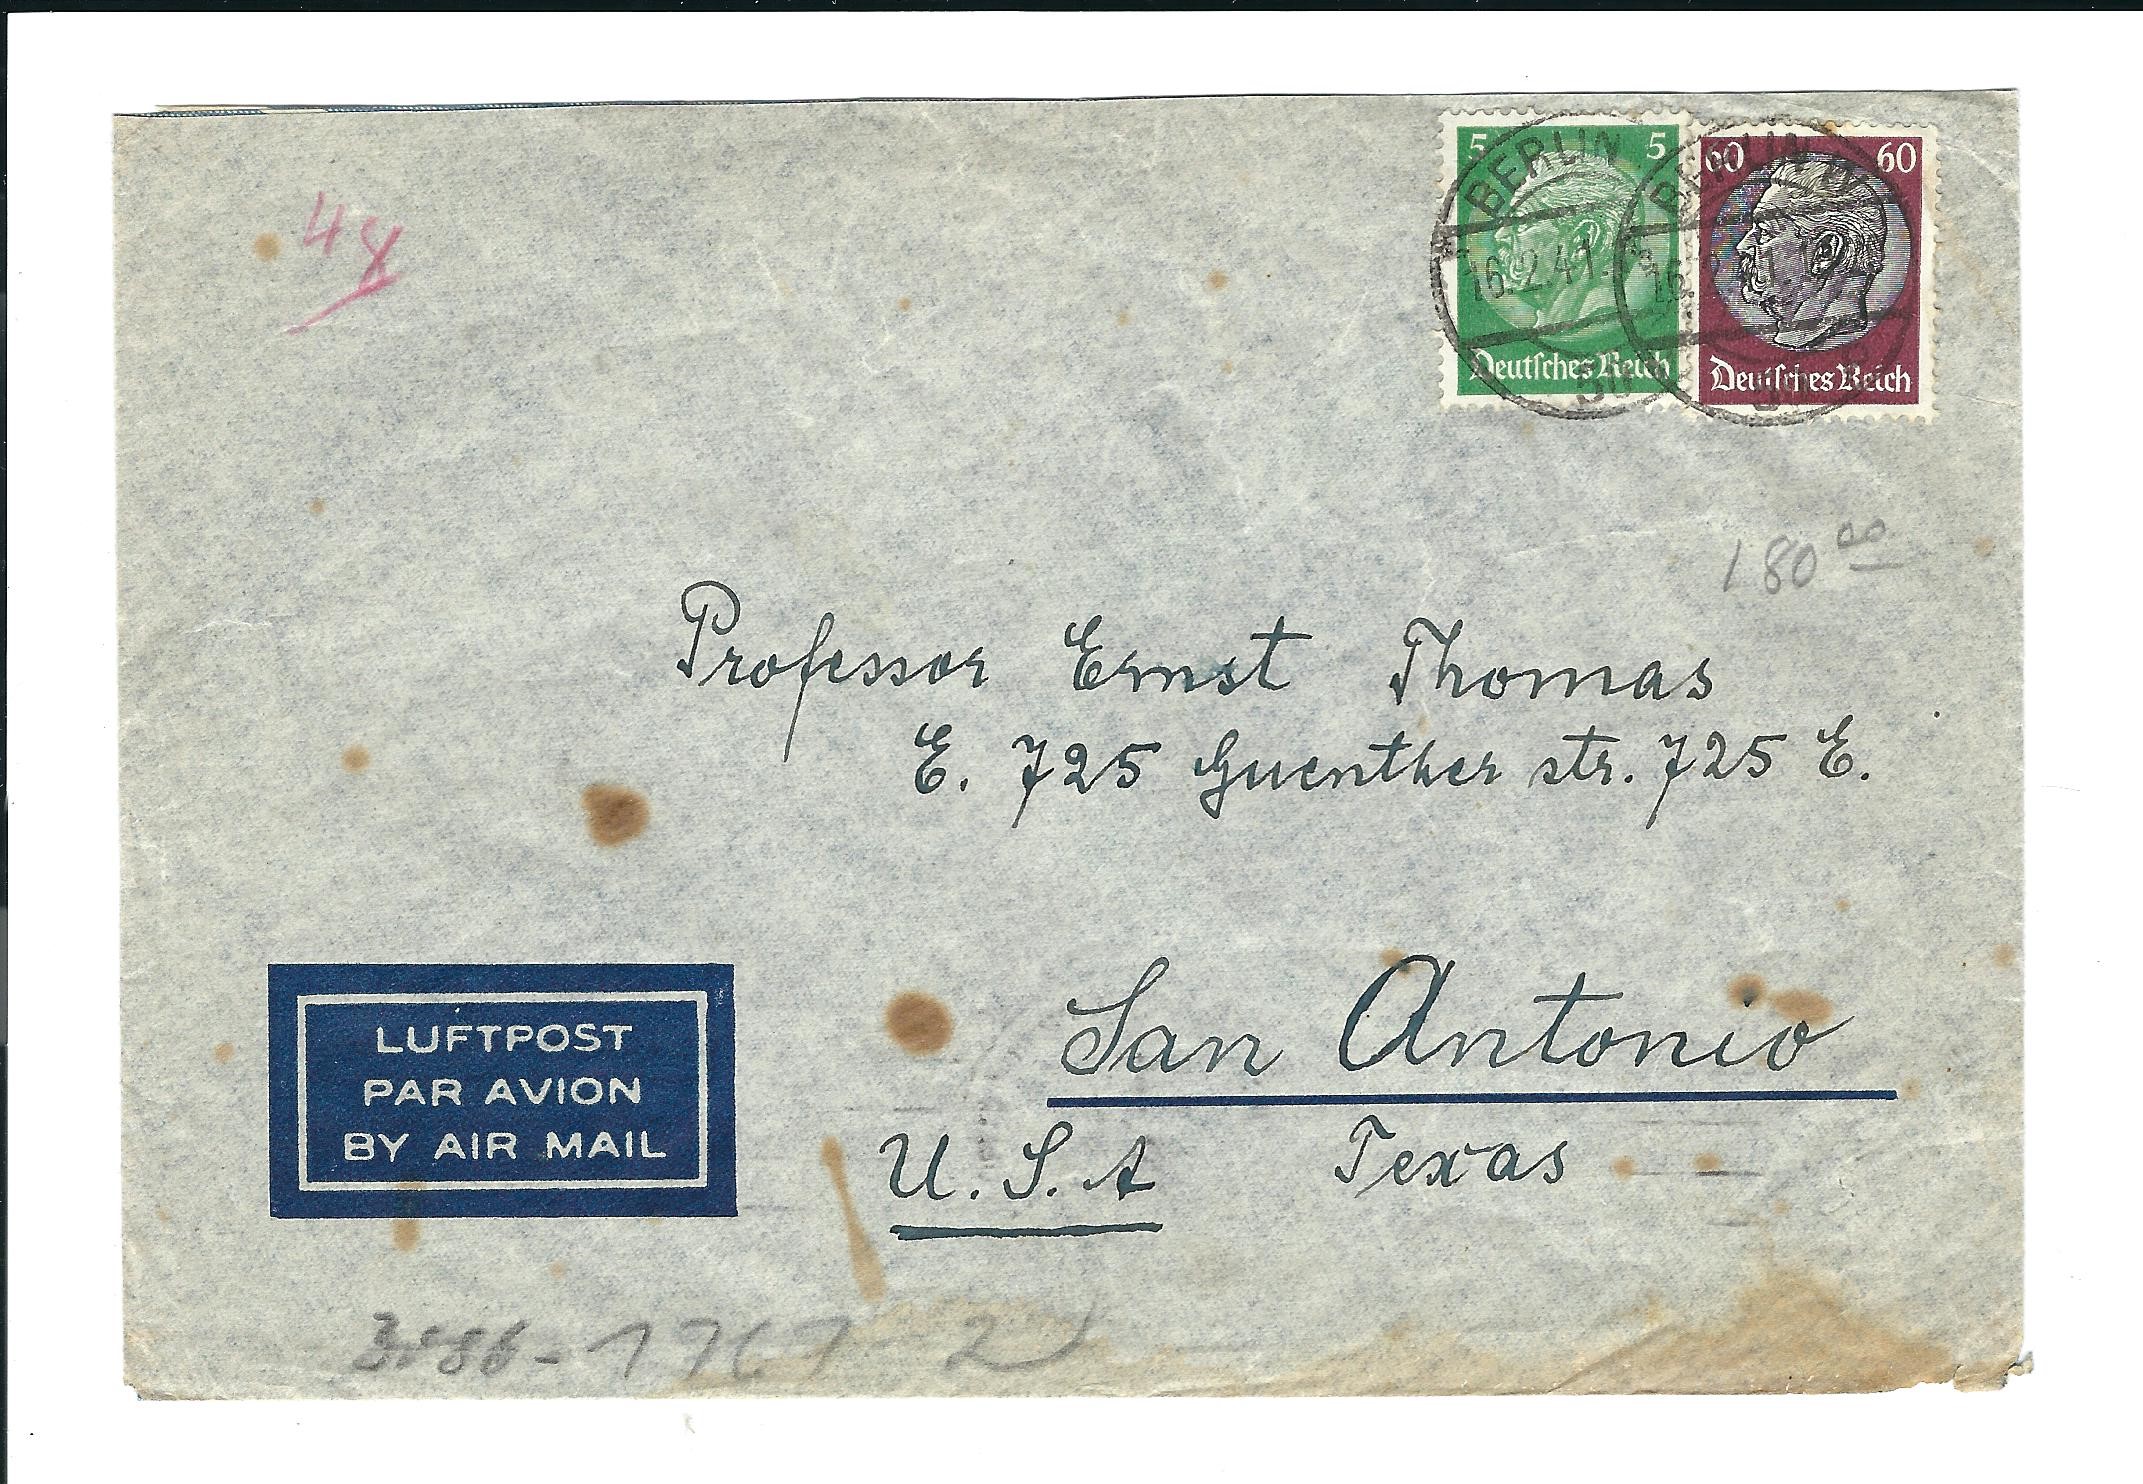 48
5 5
Deutsches Reich
60 60
Deutsches Reich
BERLIN
16.2.41
BERLIN
16.
180 00
Professor Ernst Thomas
E. 725 Guenther str. 725 E.
San Antonio
U.S.A Texas
LUFTPOST
PAR AVION
BY AIR MAIL